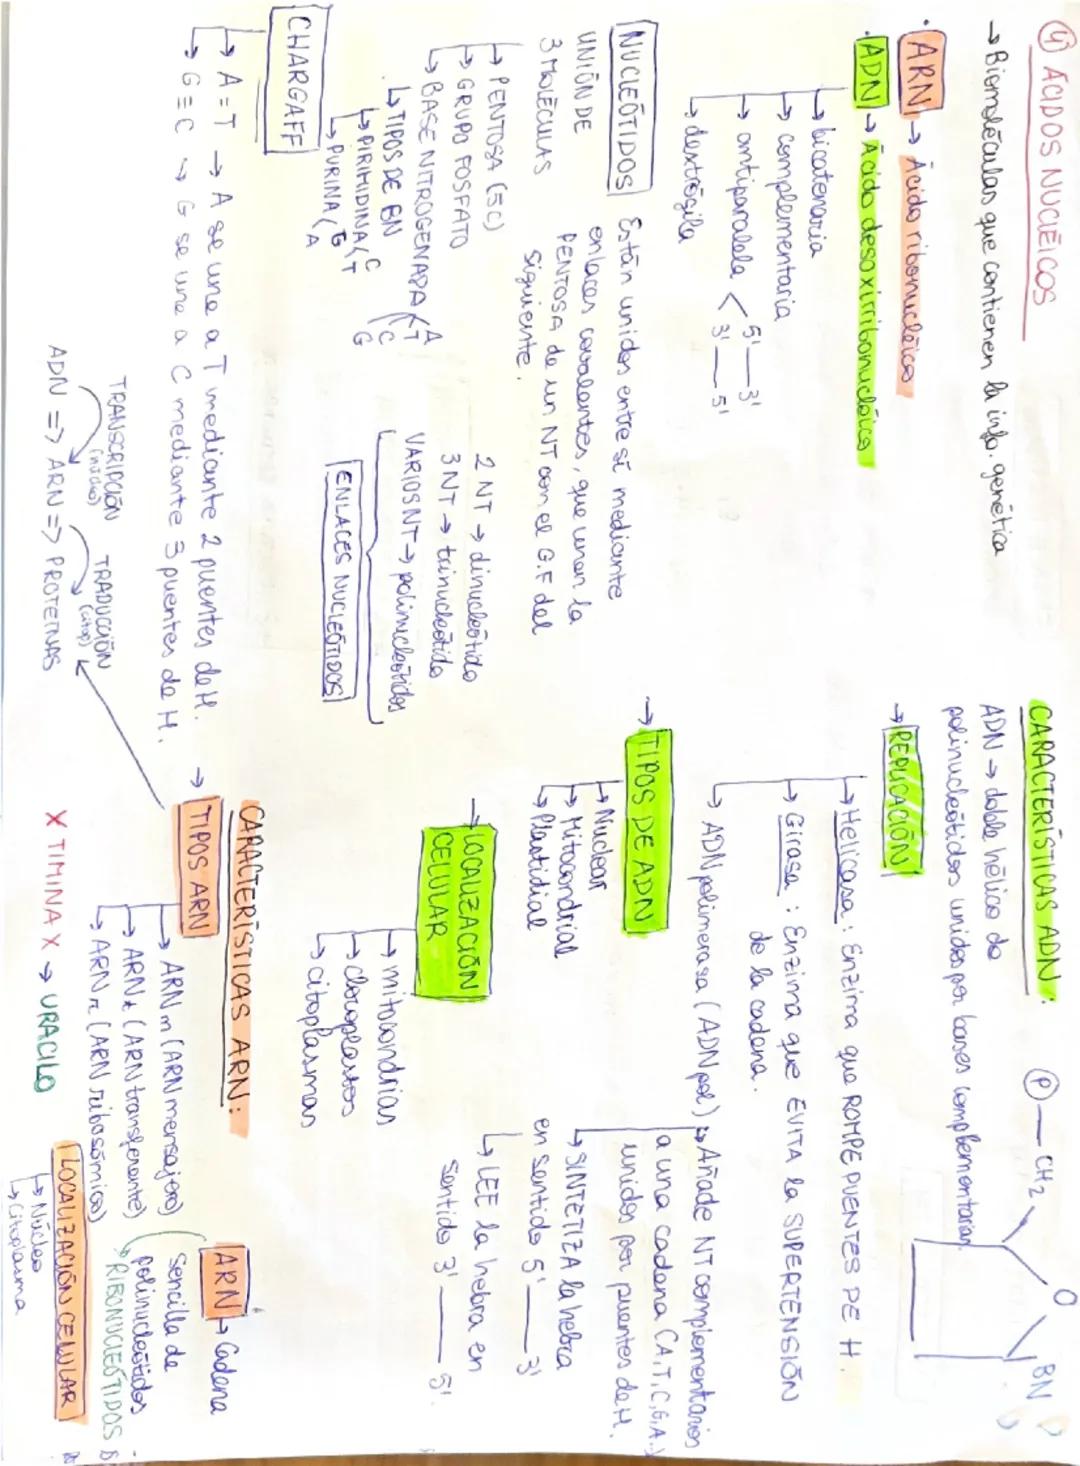 ④ ÁCIDOS NUCLÉICOS
→ Biomoléculas que contienen la info. genética
· ARN → Ácido ribonucléico
· ADN → Ácido desoxirribonucléico
→ bicatenaria
→ complementaria
→ antiparalela < 5' — 3'
3' — 5'
→ dextrógila
NUCLEÓTIDOS
UNIÓN DE
3 MOLÉCULAS
→ PENTOSA (5C)
→ GRUPO FOSFATO
→ BASE NITROGENADA
A
T
C
G
→ TIPOS DE BN
→ PIRIMIDINA C
T
→ PURINA G
A
Están unidos entre sí mediante
enlaces covalentes, que unen la
PENTOSA de un NT con el G.F del
siguiente.
2 NT → dinucleótido
3 NT → trinucleótido
VARIOS NT → polinucleótidos
ENLACES NUCLEÓTIDOS
CHARGAFF
→ A = T → A se une a T mediante 2 puentes de H.
→ G ≡ C → G se une a C mediante 3 puentes de H.
TRANSCRIPCIÓN
(núcleo)
TRADUCCIÓN
(citop)
ADN => ARN => PROTEÍNAS
CARACTERÍSTICAS ADN:
ADN → doble hélice de
polinucleótidos unidos por bases complementarias.
P — CH2
O
BN
→ REPLICACIÓN
→ Helicasa: Enzima que ROMPE PUENTES DE H.
→ Girasa: Enzima que EVITA la SUPERTENSIÓN
de la cadena.
→ ADN polimerasa (ADN pol) → Añade NT complementarios
a una cadena (A,T,C,G,A..)
unidos por puentes de H.
→ SINTETIZA la hebra
en sentido 5' — 3'
→ LEE la hebra en
sentido 3' — 5'.
→ TIPOS DE ADN
→ Nuclear
→ Mitocondrial
→ Plastidial
→ LOCALIZACIÓN
CELULAR
→ mitocondrias
→ cloroplastos
→ citoplasmas
CARACTERÍSTICAS ARN:
→ TIPOS ARN
→ ARN m (ARN mensajero)
→ ARN t (ARN transferente)
→ ARN r (ARN ribosómico)
ARN → Cadena
sencilla de
polinucleótidos
→ RIBONUCLEÓTIDOS
X TIMINA X → URACILO
LOCALIZACIÓN CELULAR
→ Núcleo
→ Citoplasma